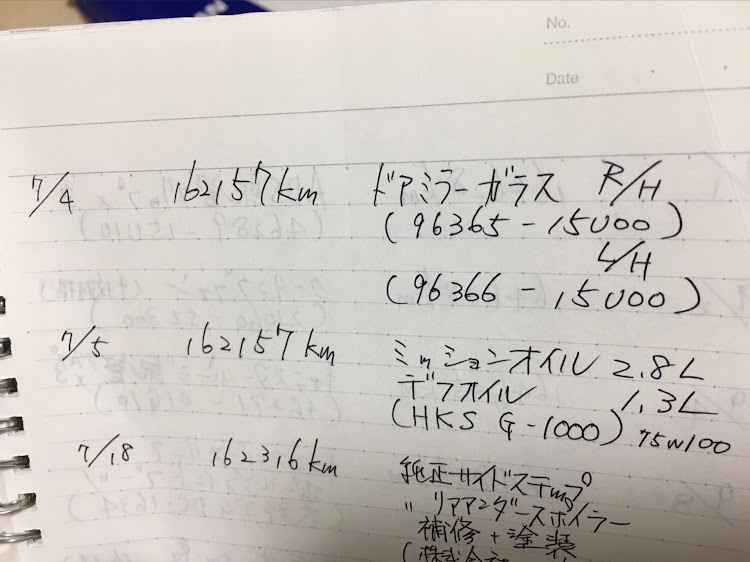 No.
Date
7/4 162157km ドアミラーガラス R/H
(96365-15U00)
L/H
(96366-15U00)
7/5 162157km ミッションオイル 2.8L
デフオイル 1.3L
(HKS G-1000) 75W100
7/18 162316km 純正サイドステップ
〃 リアアンダースポイラー
補修+塗装
(株式会社